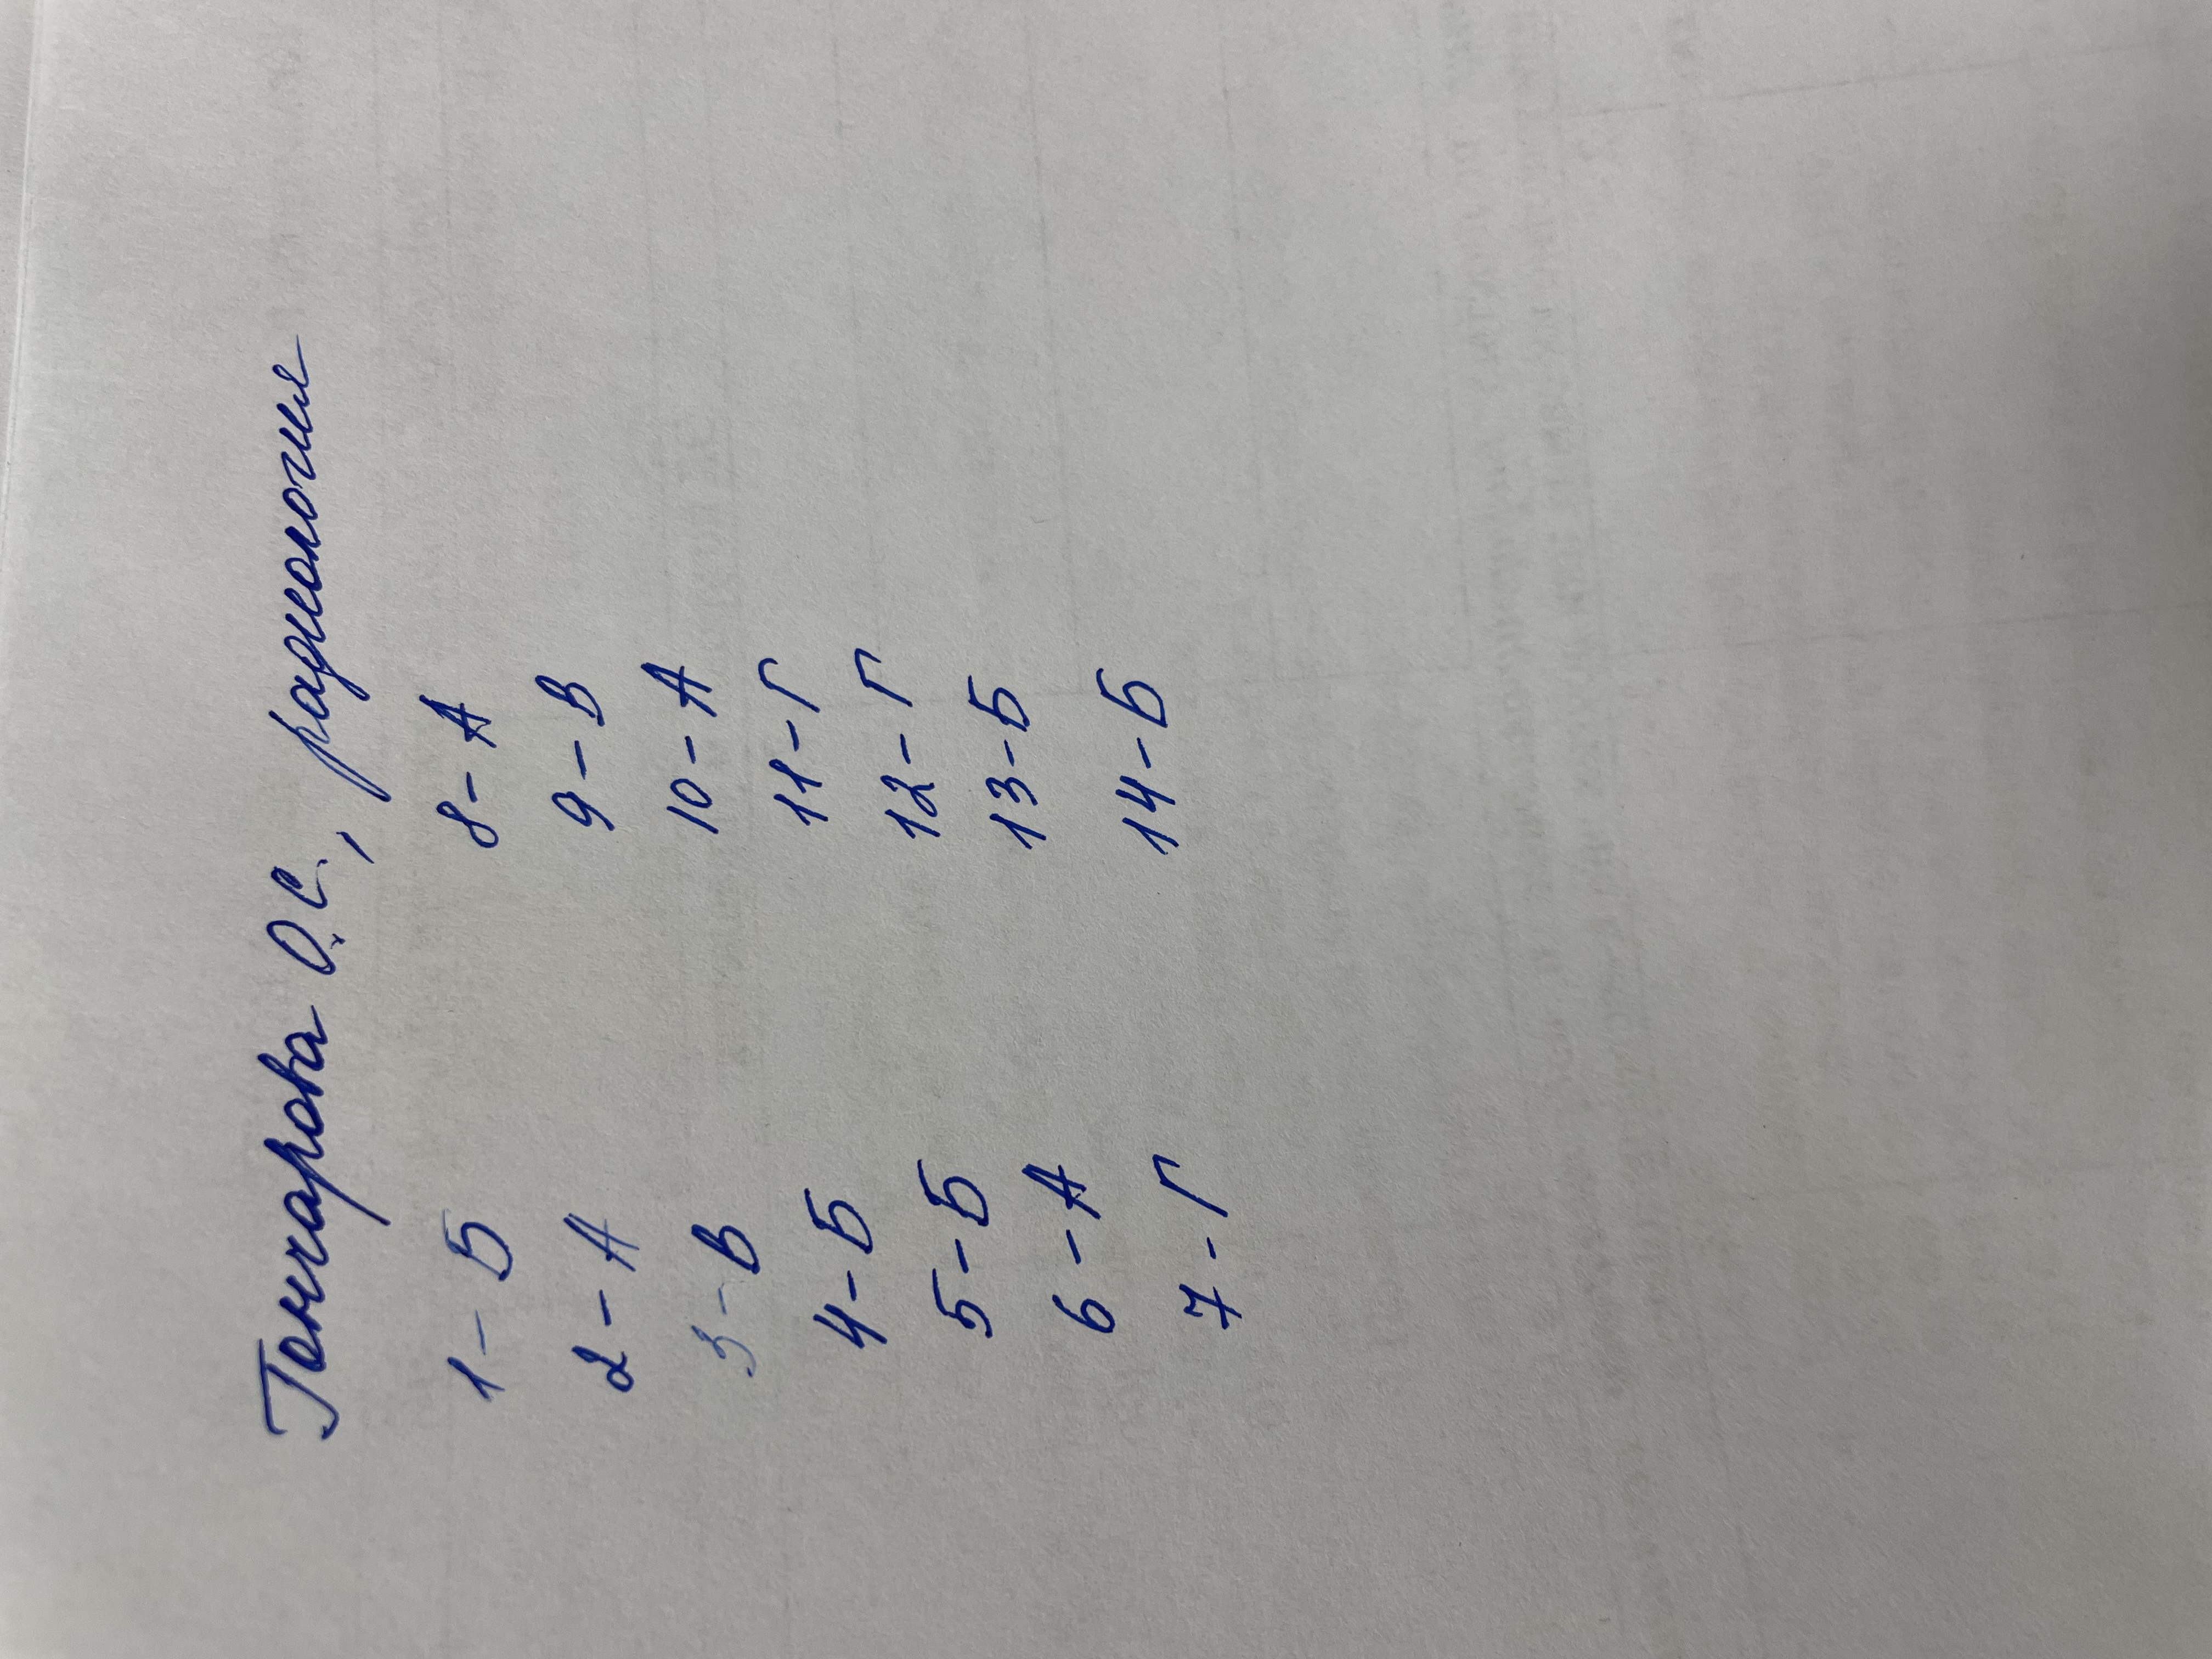 Гончарова О.С., радиология
1 - Б
2 - А
3 - В
4 - Б
5 - Б
6 - А
7 - Г
8 - А
9 - В
10 - А
11 - Г
12 - Г
13 - Б
14 - Б